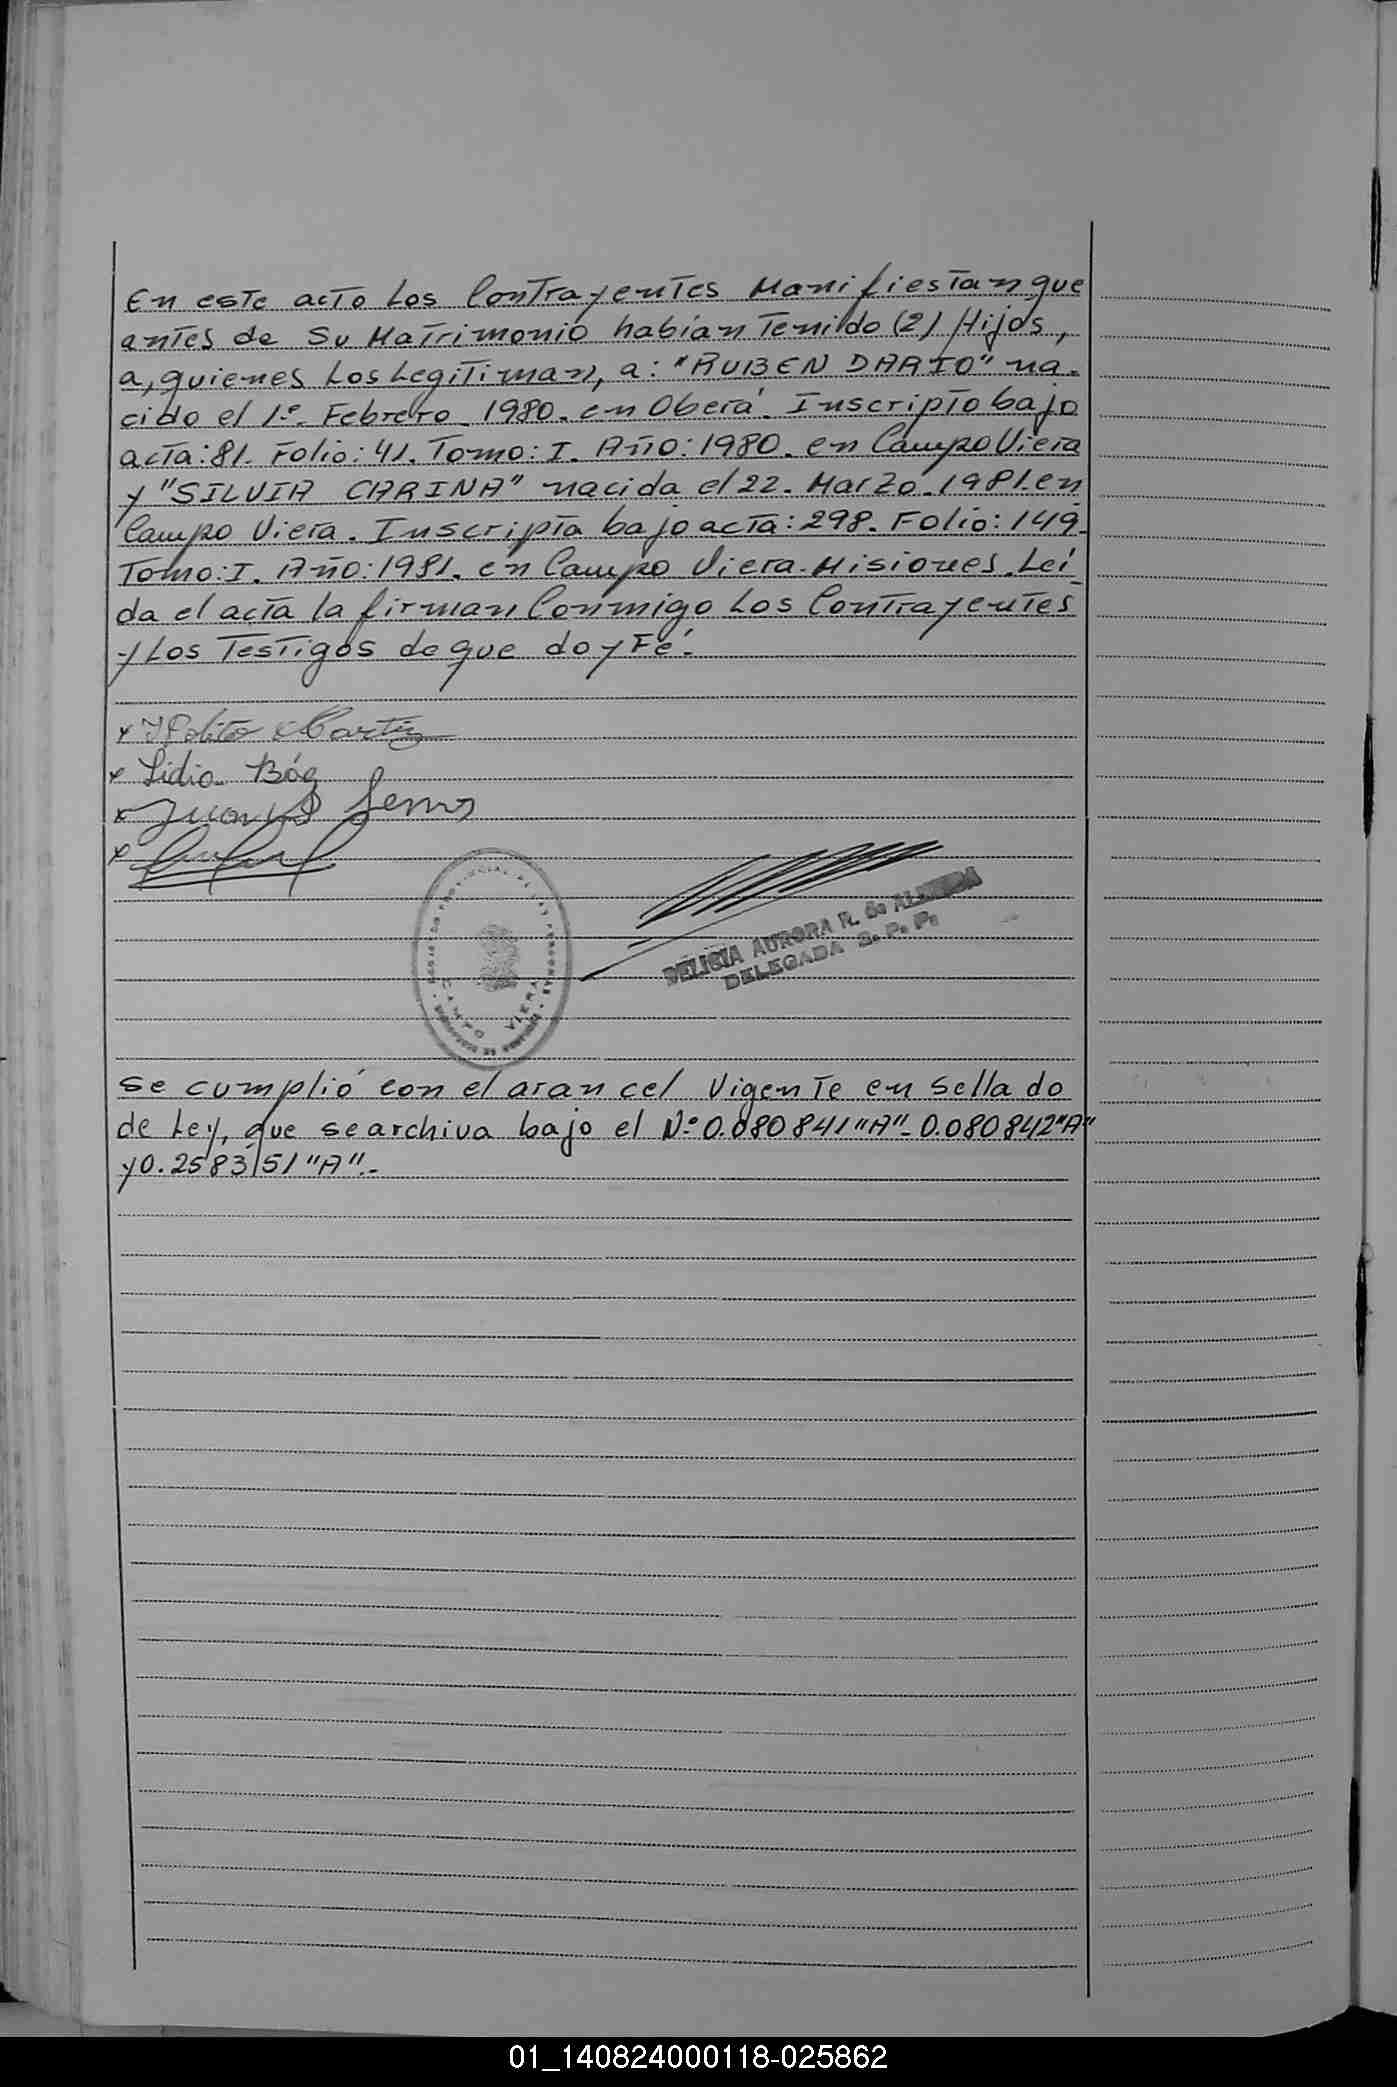 En este acto Los Contrayentes Manifiestan que
antes de Su Matrimonio habían Tenido (2) Hijos,
a, quienes Los Legitiman, a: "RUBEN DARIO" na-
cido el 1º. Febrero. 1980. en Oberá. Inscripto bajo
acta: 81. Folio: 41. Tomo: I. Año: 1980. en Campo Viera
y "SILVIA CARINA" nacida el 22. Marzo. 1981. en
Campo Viera. Inscripta bajo acta: 298. Folio: 149.
Tomo: I. Año: 1981. en Campo Viera. Misiones. Leí
da el acta la firman Conmigo Los Contrayentes
y Los Testigos de que doy Fé.
x
x Lidia Bóg
x Juan
x
DELICIA AURORA R. de ALMEIDA
DELEGADA R. P. P.
CAMPO VIERA
Se cumplió con el arancel Vigente en Sellado
de Ley, que se archiva bajo el Nº 0.080841 "A". 0.080842 "A"
y 0.2583151 "A".-
01_140824000118-025862